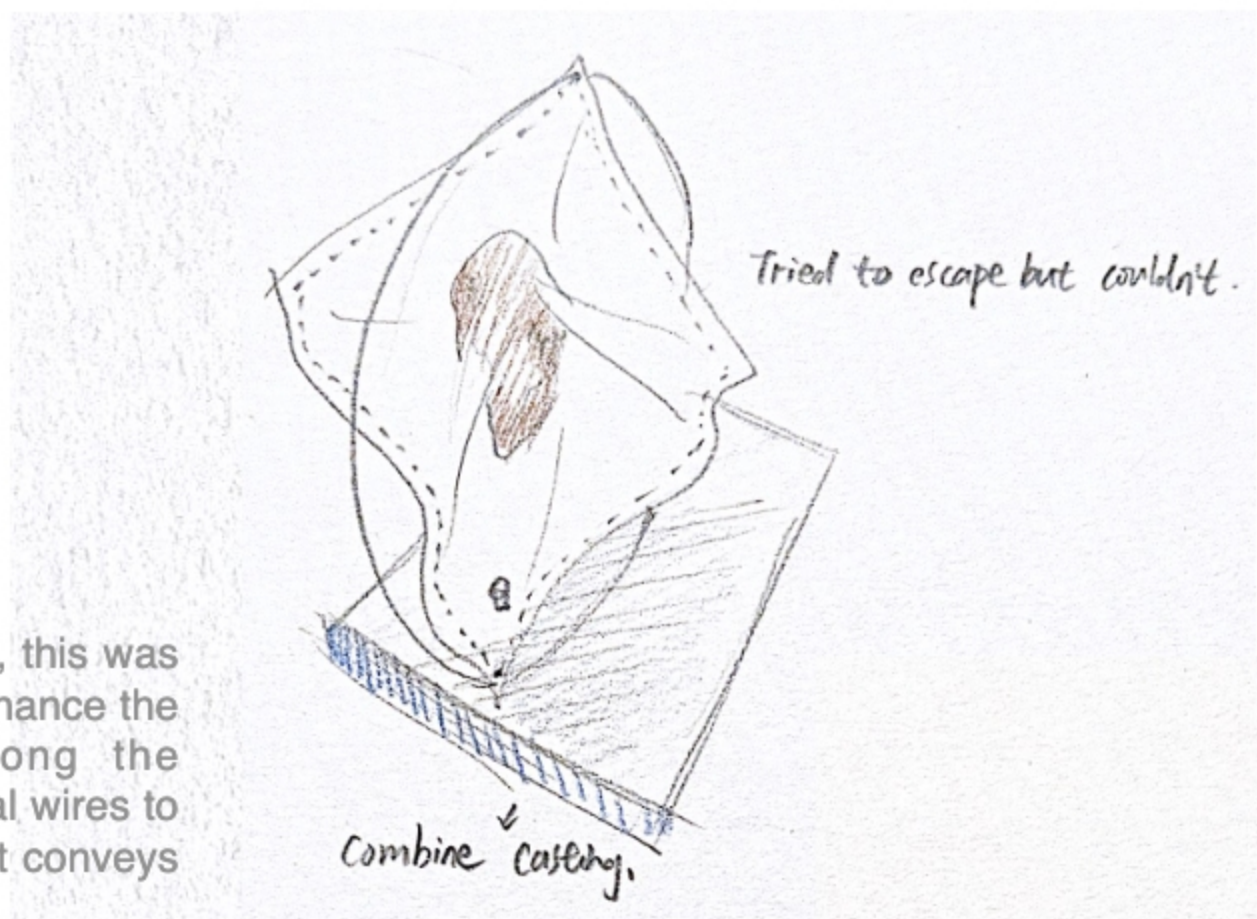 Tried to escape but couldn't.
, this was
nance the
ong the
al wires to
t conveys
Combine Casting.